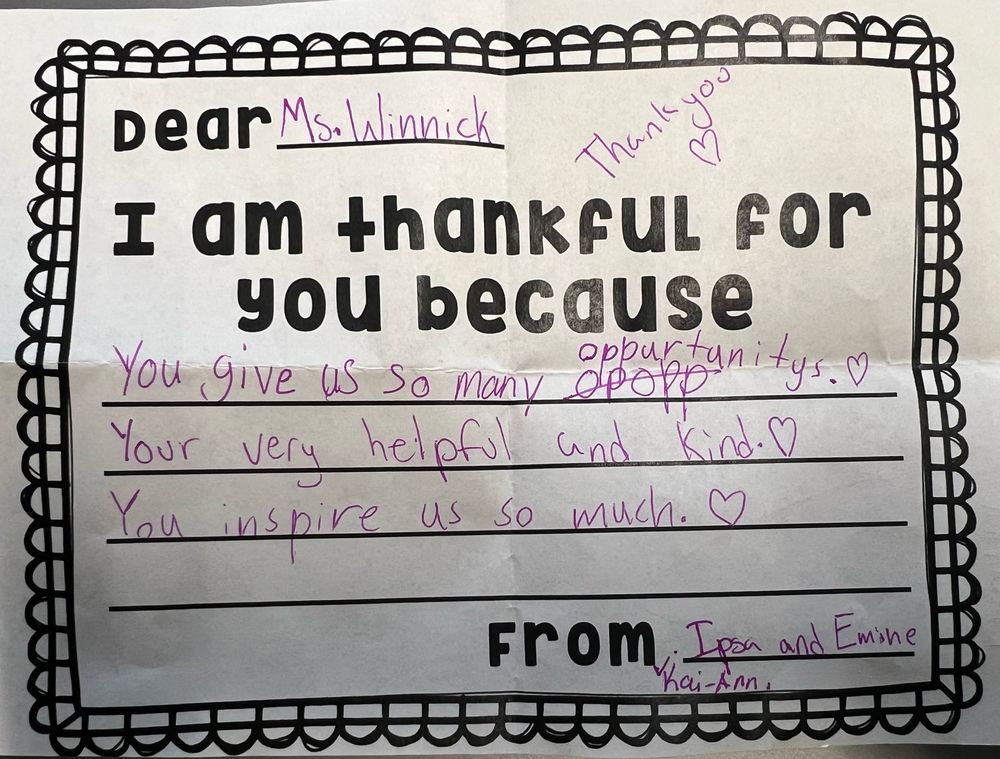 Dear Ms. Winnick
Thank you ♡
I am thankful for
you because
You give us so many oppurtunitys. ♡
Your very helpful and kind. ♡
You inspire us so much. ♡
From Ipsa and Emine
Kai-Ann.